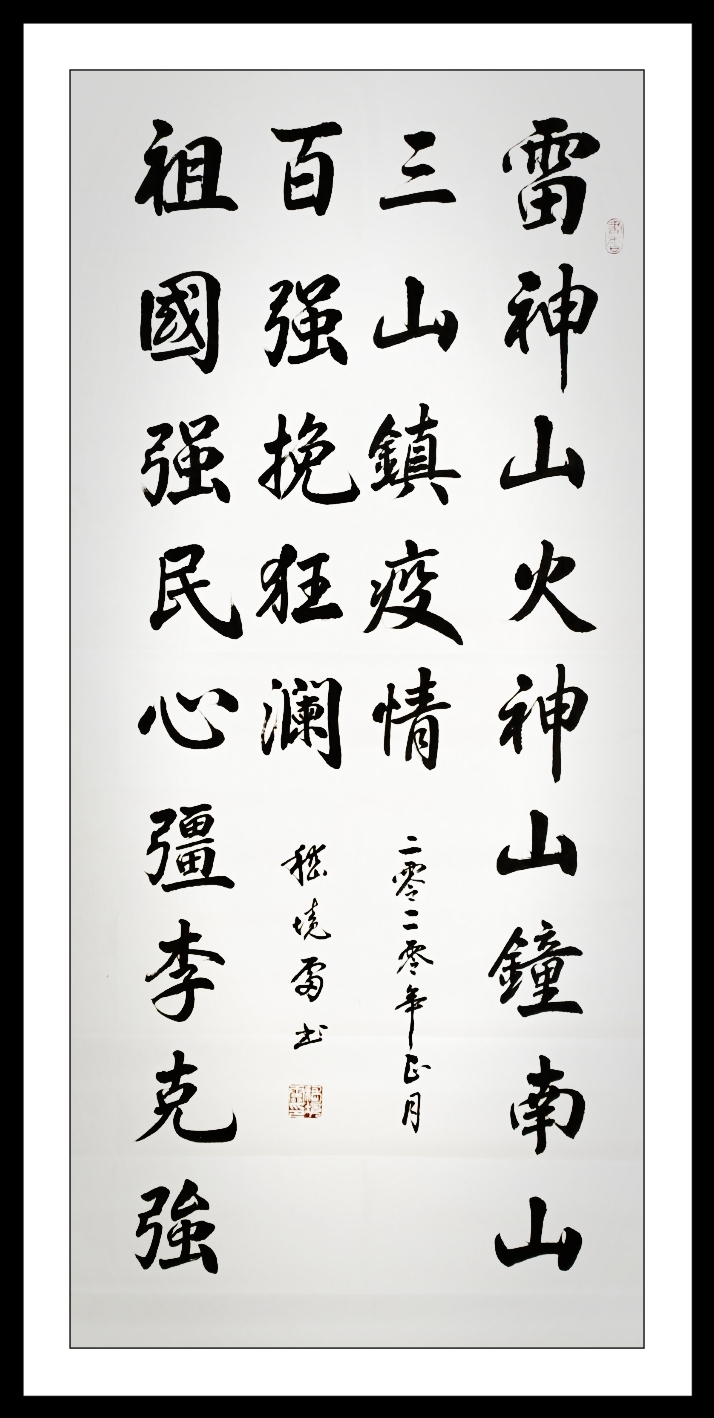 雷神山火神山鐘南山
三山鎮疫情
祖國强民心彊李克強
百强挽狂澜
二零二零年正月
境雷书